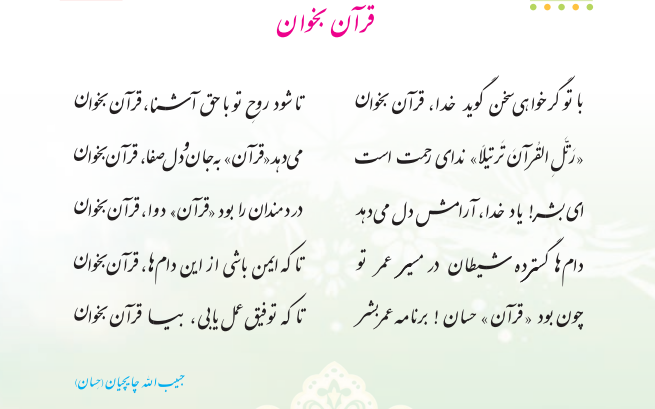 قرآن بخوان
با تو گر خواهی سخن گوید خدا، قرآن بخوان تا شود روحِ تو با حق آشنا، قرآن بخوان
«رَتِّلِ القُرآنَ تَرتیلاً» ندای رحمت است می‌دهد «قرآن» به جان و دل صفا، قرآن بخوان
ای بشر! یاد خدا، آرامش دل می‌دهد دردمندان را بود «قرآن» دوا، قرآن بخوان
دام‌ها گسترده شیطان در مسیر عمر تو تا که ایمن باشی از این دام‌ها، قرآن بخوان
چون بود «قرآن» حسان! برنامه عمر بشر تا که توفیق عمل یابی، بیا قرآن بخوان
حبیب الله چایچیان (حسان)